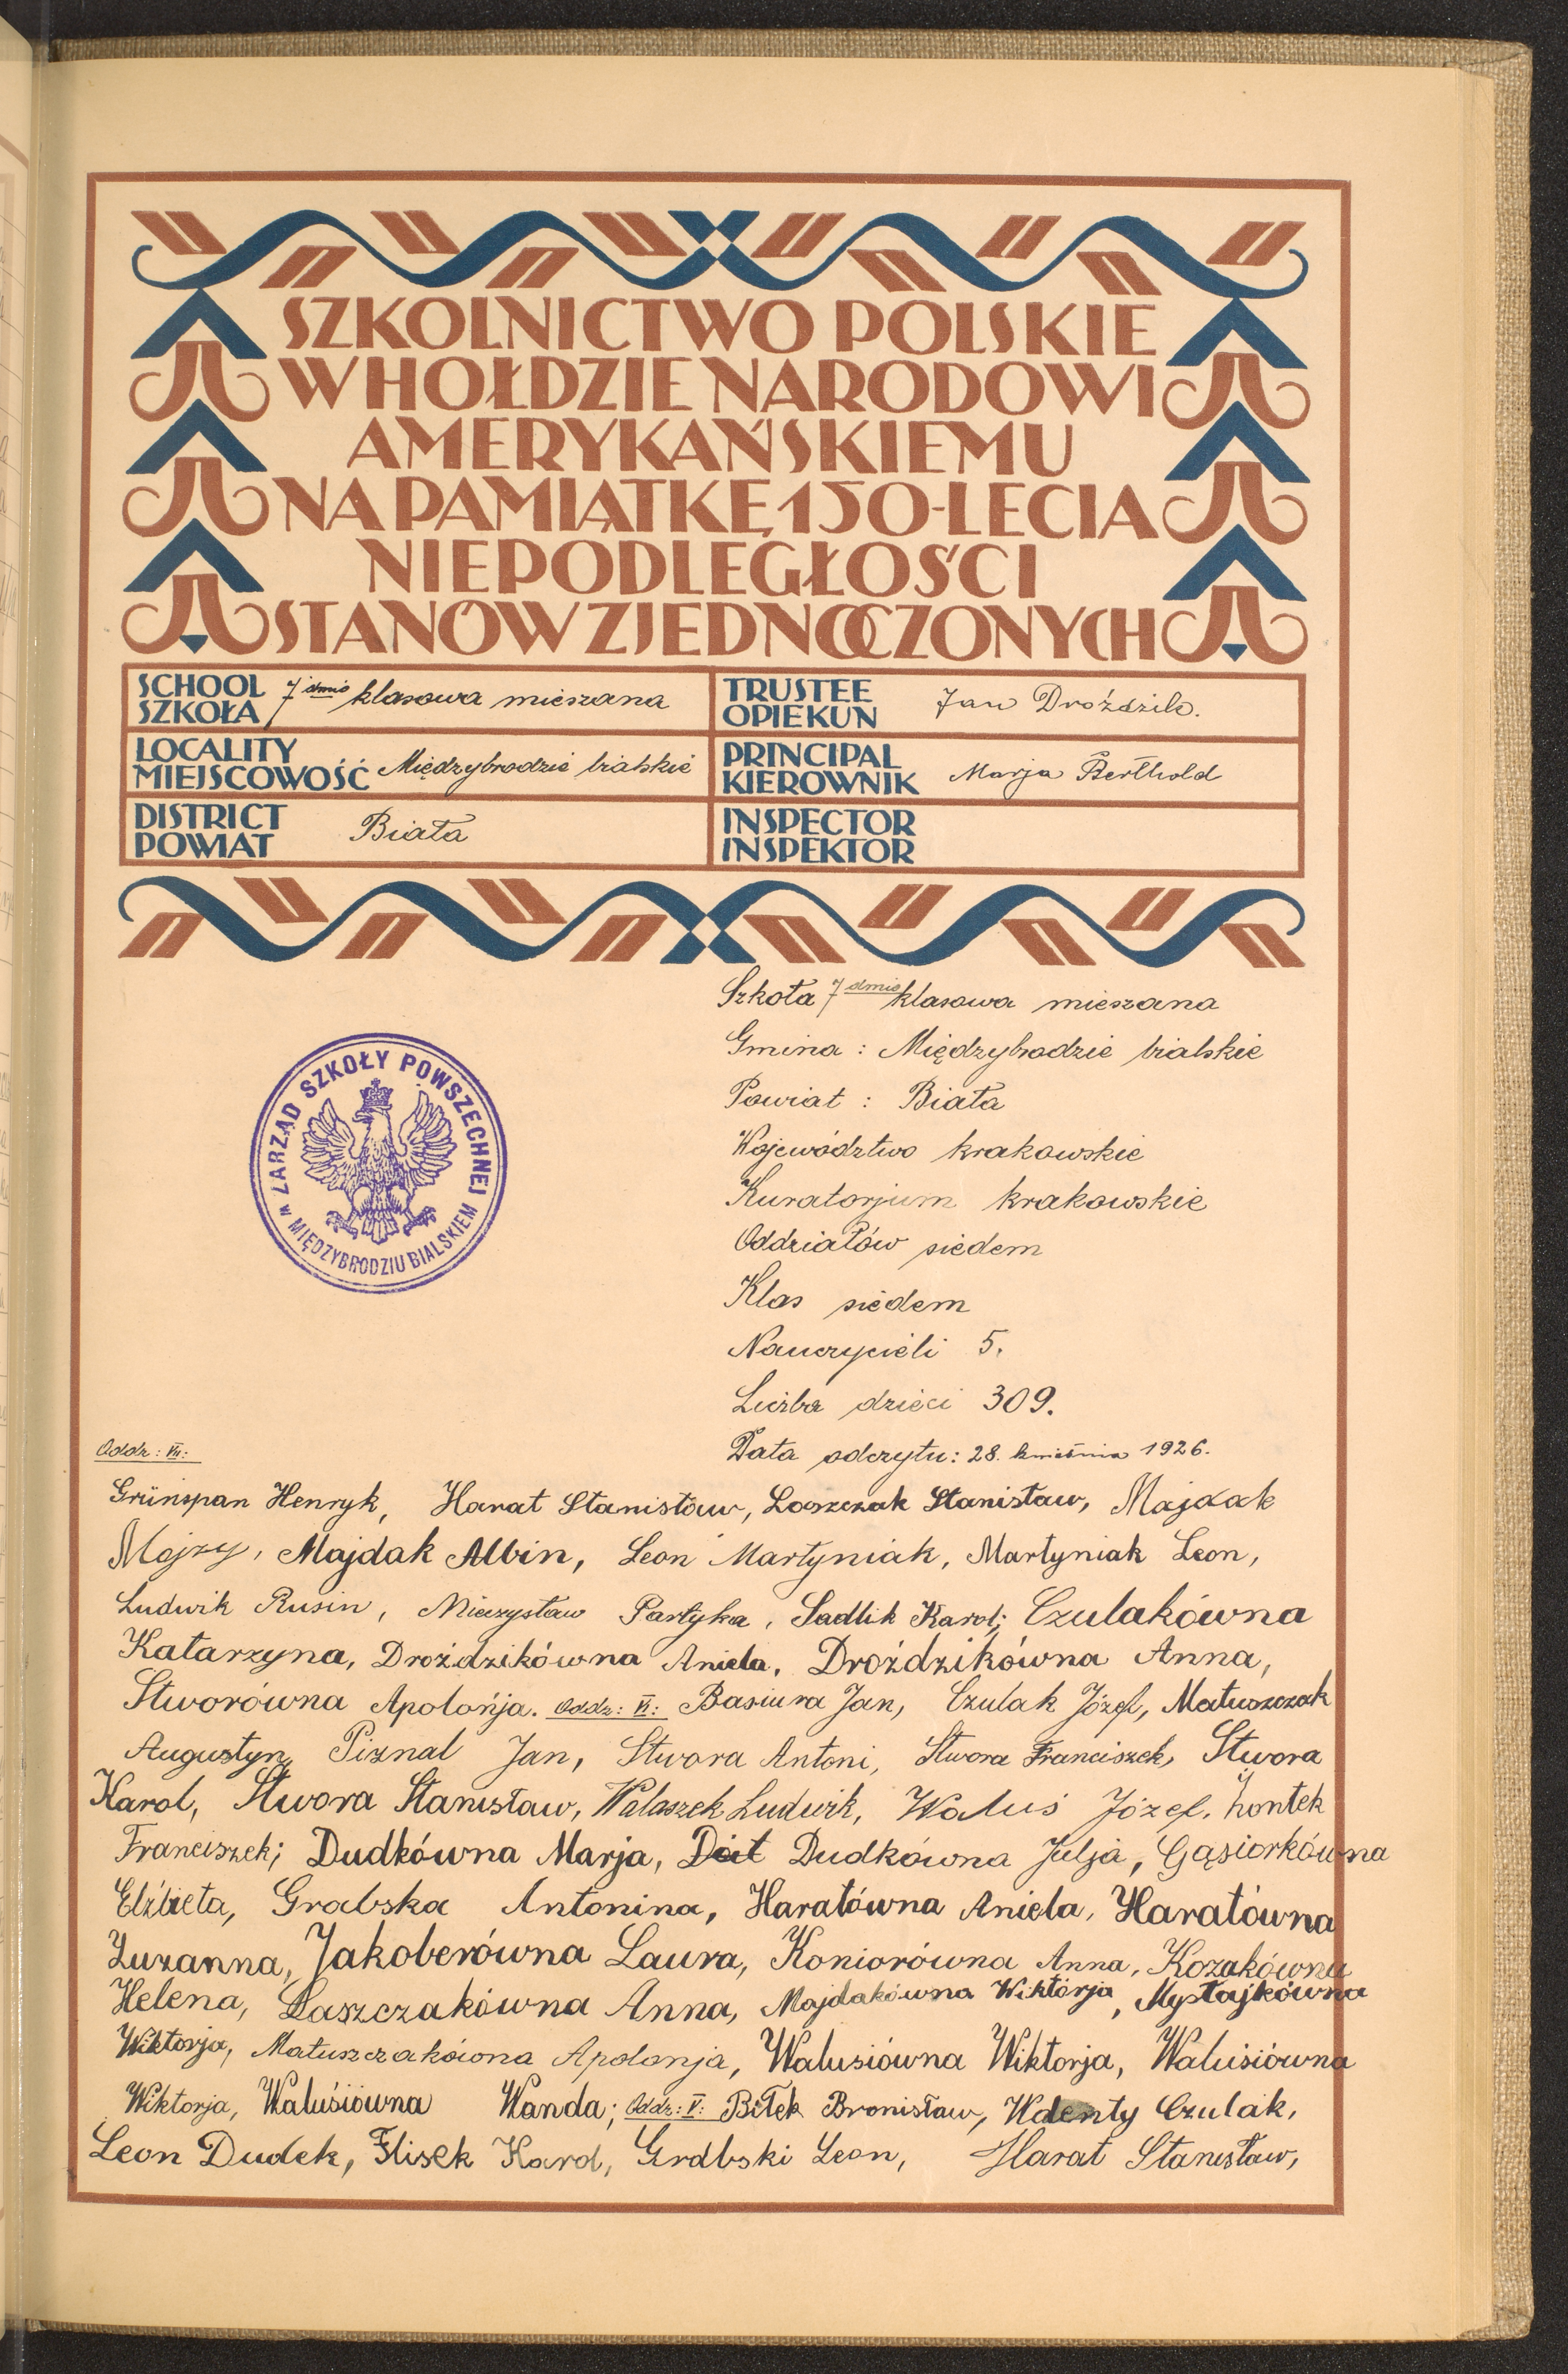 SZKOLNICTWO POLSKIE
W HOŁDZIE NARODOWI
AMERYKAŃSKIEMU
NA PAMIĄTKĘ 150-LECIA
NIEPODLEGŁOŚCI
STANÓW ZJEDNOCZONYCH
SCHOOL
SZKOŁA 7dmio klasowa mieszana
TRUSTEE
OPIEKUN Jan Droździk.
LOCALITY
MIEJSCOWOŚĆ Międzybrodzie bialskie
PRINCIPAL
KIEROWNIK Marja Berthold
DISTRICT
POWIAT Biała
INSPECTOR
INSPEKTOR
Szkoła 7dmio klasowa mieszana
Gmina : Międzybrodzie bialskie
Powiat : Biała
Województwo krakowskie
Kuratorjum krakowskie
Oddziałów siedem
Klas siedem
Nauczycieli 5.
Liczba dzieci 309.
Data odczytu: 28. kwietnia 1926.
ZARZĄD SZKOŁY POWSZECHNEJ
w MIĘDZYBRODZIU BIALSKIEM
Oddz: VII:
Grünspan Henryk, Harat Stanisław, Laszczak Stanisław, Majdak
Alojzy, Majdak Albin, Leon Martyniak, Martyniak Leon,
Ludwik Rusin, Mieczysław Partyka, Sadlik Karol; Czulakówna
Katarzyna, Droździkówna Aniela, Droździkówna Anna,
Stworówna Apolonja. Oddz: VI: Basiura Jan, Czulak Józef, Matuszczak
Augustyn, Piznal Jan, Stwora Antoni, Stwora Franciszek, Stwora
Karol, Stwora Stanisław, Walaszek Ludwik, Waluś Józef, Żontek
Franciszek; Dudkówna Marja, Dudkówna Julja, Gąsiorkówna
Elżbieta, Grabska Antonina, Haratówna Aniela, Haratówna
Zuzanna, Jakoberówna Laura, Koniorówna Anna, Kozakówna
Helena, Laszczakówna Anna, Majdakówna Wiktorja, Mysłajkówna
Wiktorja, Matuszczakówna Apolonja, Walusiówna Wiktorja, Walusiówna
Wiktorja, Walusiówna Wanda; Oddz: V: Biłek Bronisław, Walenty Czulak,
Leon Dudek, Flisek Karol, Grabski Leon, Harat Stanisław,